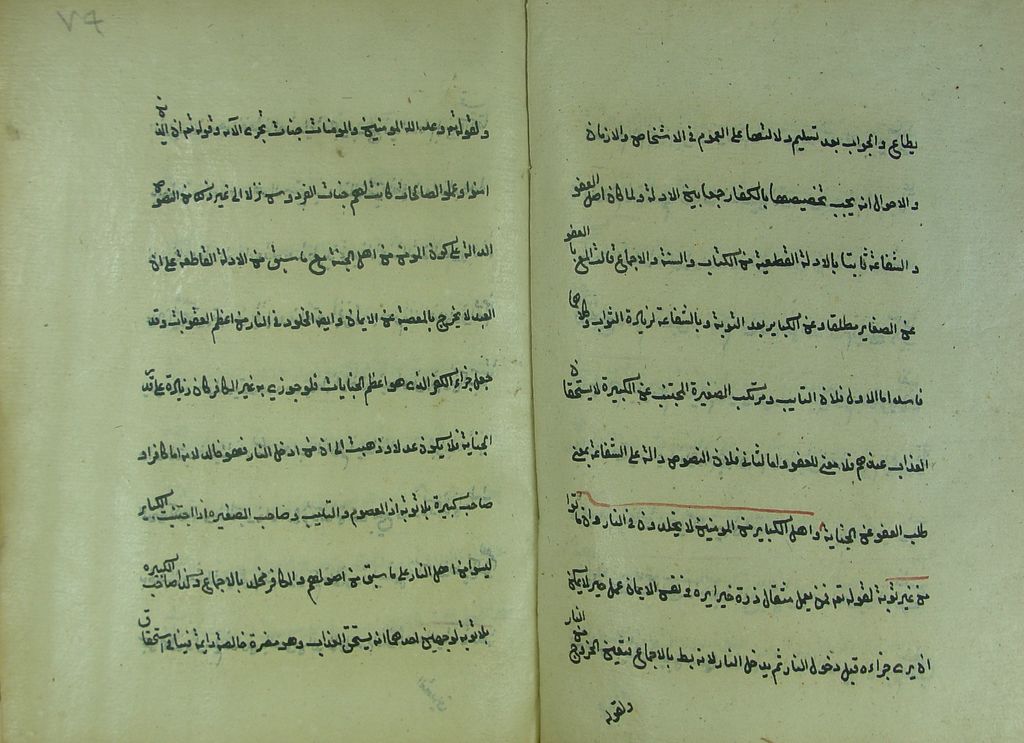 يطاع والجواب بعد تسليم دلالتها على العموم في الاشخاص والازمان
والاحوال انه يجب تخصيصها بالكفار جمعا بين الادلة ولما كان اصل العفو
والشفاعة ثابتا بالادلة القطعية من الكتاب والسنة والاجماع قالت المع بالعفو
عن الصغاير مطلقا وعن الكباير بعد التوبة وبالشفاعة لزيادة الثواب وكلاهما
فاسد اما الاول فلان التايب ومرتكب الصغيرة المجتنب عن الكبيرة لا يستحقان
العذاب عندهم فلا معنى للعفو واما الثاني فلان النصوص دالة على الشفاعة بمعنى
طلب العفو عن الجناية واهل الكباير من المومنين لا يخلدون في النار وان ماتوا
من غير توبة لقوله تعه فمن يعمل مثقال ذرة خيرا يره ونفس الايمان عمل خير لا يمكن
ان يرى جزاءه قبل دخول النار ثم يدخل النار لانه بط بالاجماع فتعين الخروج من النار
ولقوله
٧٩
ولقوله تعه وعد الله المومنين والمومنات جنات تجرى الآيه وقوله تعه ان الذين
امنوا وعملو الصالحات كانت لهم جنات الفردوس نزلا الى غير ذلك من النصوص
الدالة على كون المومن من اهل الجنة مع ما سبق من الادلة القاطعة على ان
العبد لا يخرج بالمعصية عن الايمان وايضا الخلود في النار من اعظم العقوبات وقد
جعل جزاء الكفر الذى هو اعظم الجنايات فلو جوزى به غير الكافر كان زيادة على قدر
الجناية فلا يكون عدلا وذهبت الى ان من ادخل النار فهو خالد لانه اما كافر او
صاحب كبيرة بلا توبة اذ المعصوم والتايب وصاحب الصغيره اذا اجتنب الكباير
ليسوا من اهل النار على ما سبق من اصولهم والكافر مخلد بالاجماع وكذا صاحب الكبيره
بلا توبة لوجهين احدهما انه يستحق العذاب وهو مضرة خالصة دايمة فينافى استحقاق